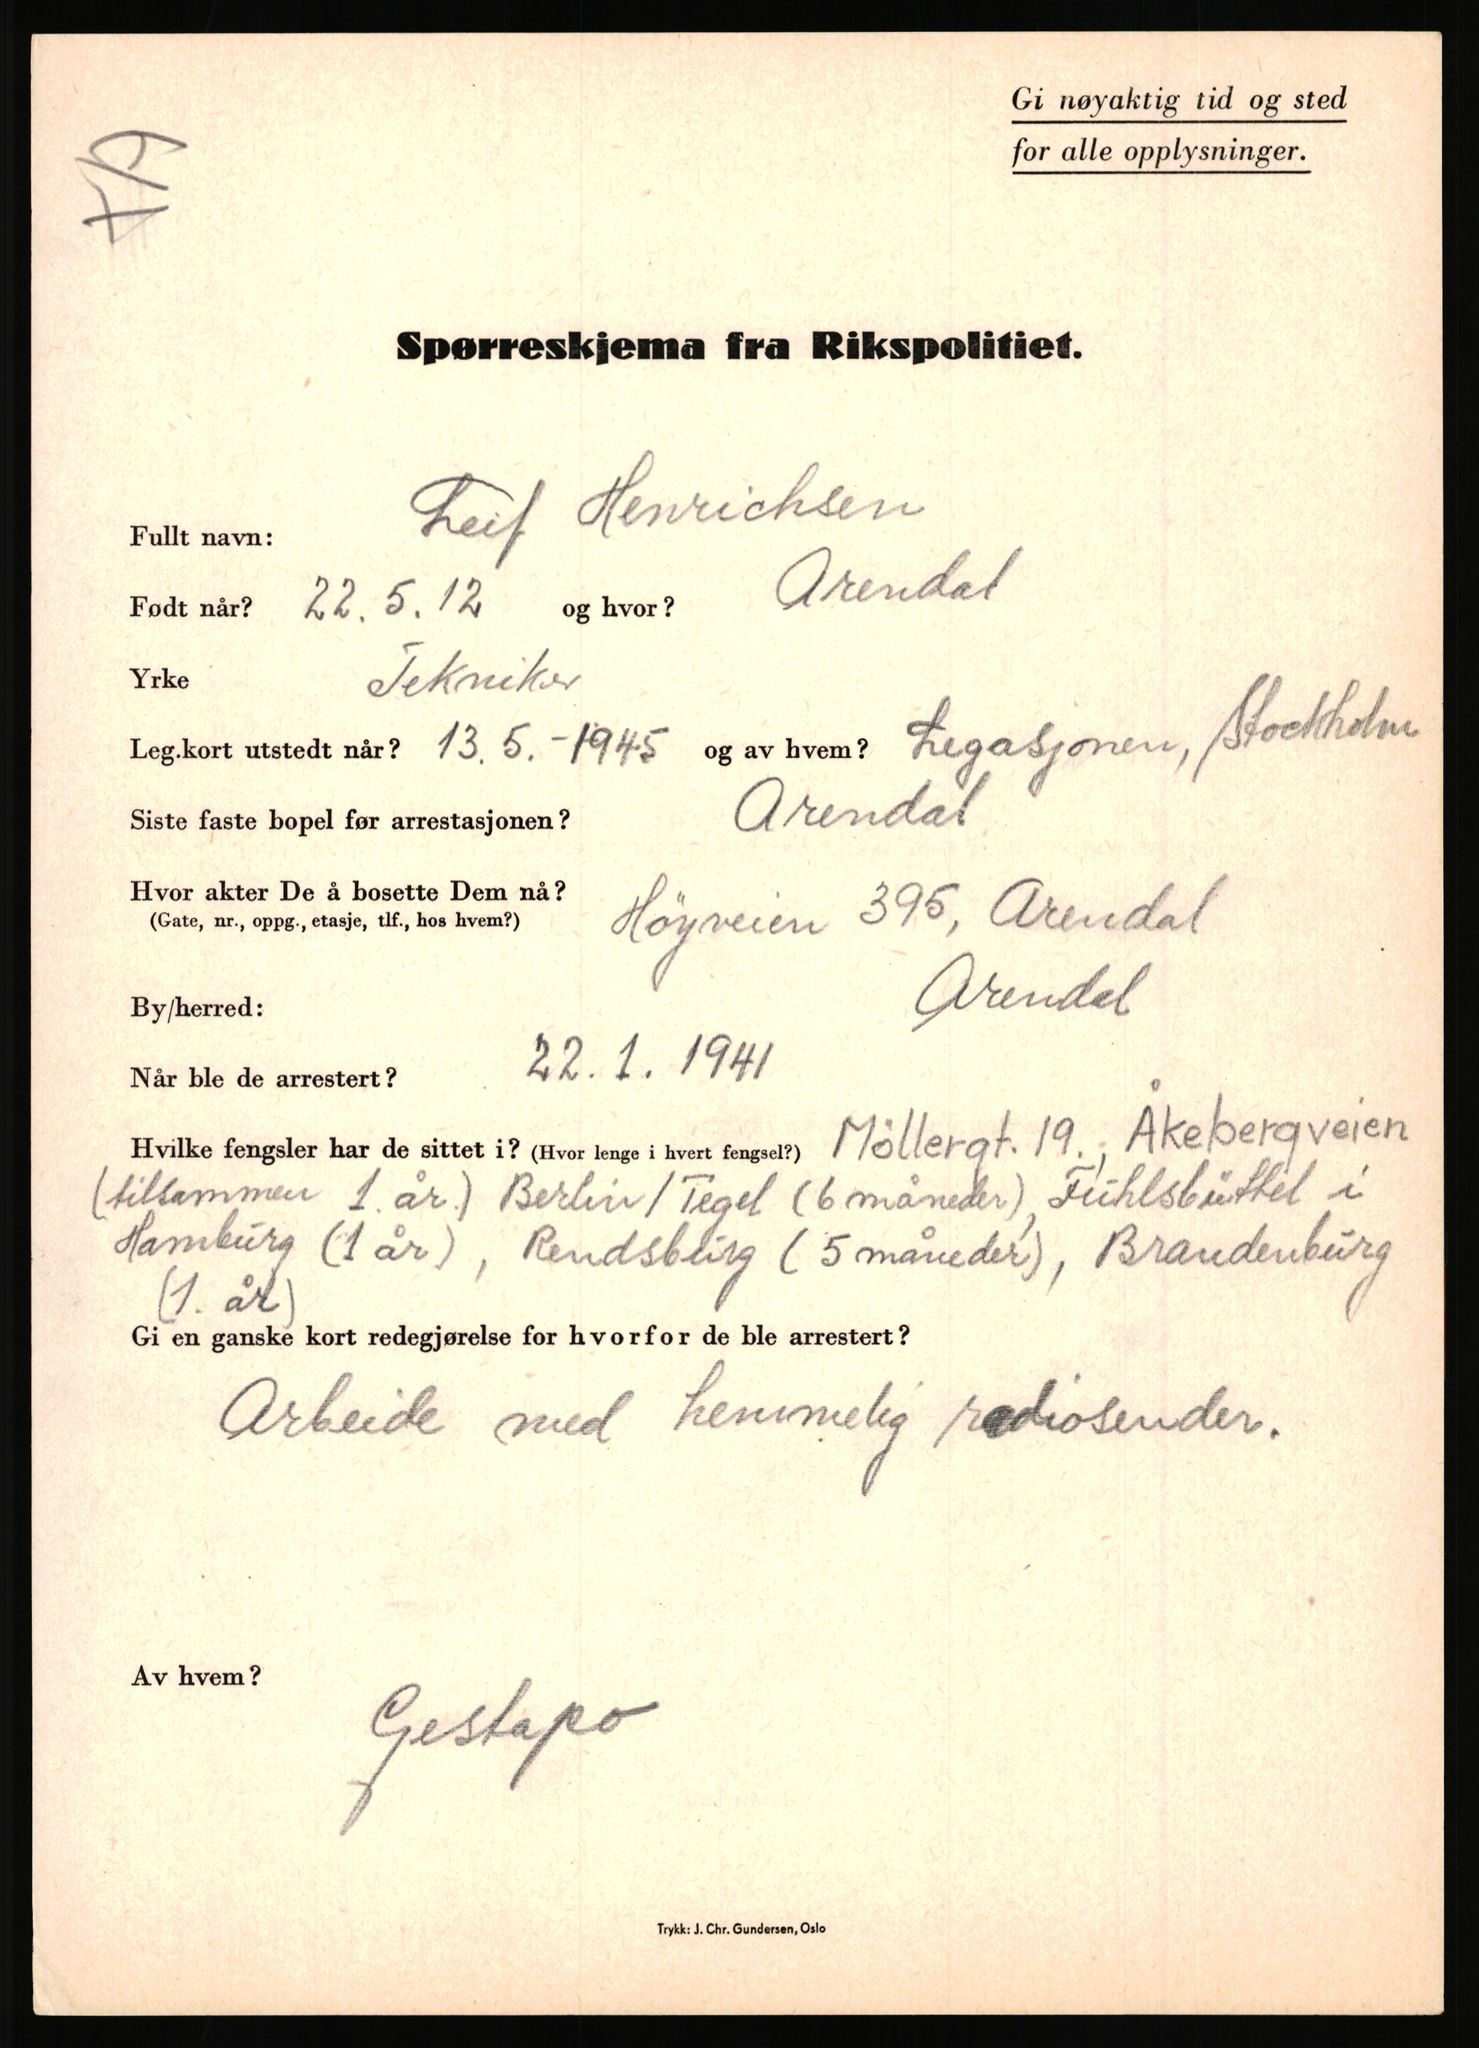 Gi nøyaktig tid og sted
for alle opplysninger.
Spørreskjema fra Rikspolitiet.
Fullt navn: Leif Henrichsen
Født når? 22.5.12 og hvor? Arendal
Yrke Tekniker
Leg.kort utstedt når? 13.5.-1945 og av hvem? Legasjonen, Stockholm
Siste faste bopel før arrestasjonen? Arendal
Hvor akter De å bosette Dem nå?
(Gate, nr., oppg., etasje, tlf., hos hvem?) Höyveien 395, Arendal
By/herred: Arendal
Når ble de arrestert? 22.1.1941
Hvilke fengsler har de sittet i? (Hvor lenge i hvert fengsel?) Möllergt. 19., Åkebergveien
(tilsammen 1. år.) Berlin/Tegel (6 måneder), Fühlsbüttel i
Hamburg (1 år), Rendsburg (5 måneder), Brandenburg
(1. år)
Gi en ganske kort redegjørelse for hvorfor de ble arrestert?
Arbeide med hemmelig radiosender.
Av hvem?
Gestapo
Trykk: J. Chr. Gundersen, Oslo